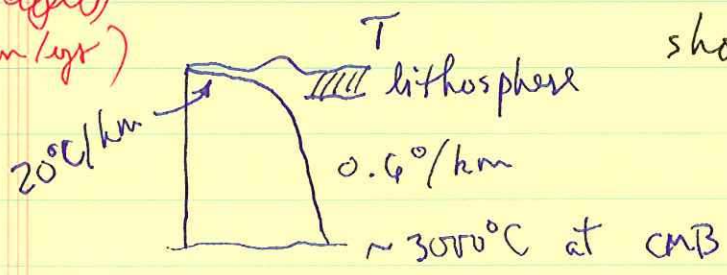 m/yr)
T
sho
lithosphere
20°C/km
0.6°/km
~3000°C at CMB